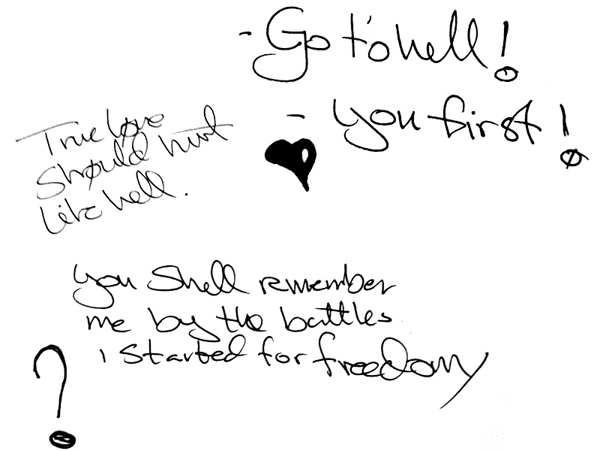 - Go to hell!
- you first!
True love
should hurt
like hell.
you shell remember
me by the battles
i started for freedom
?